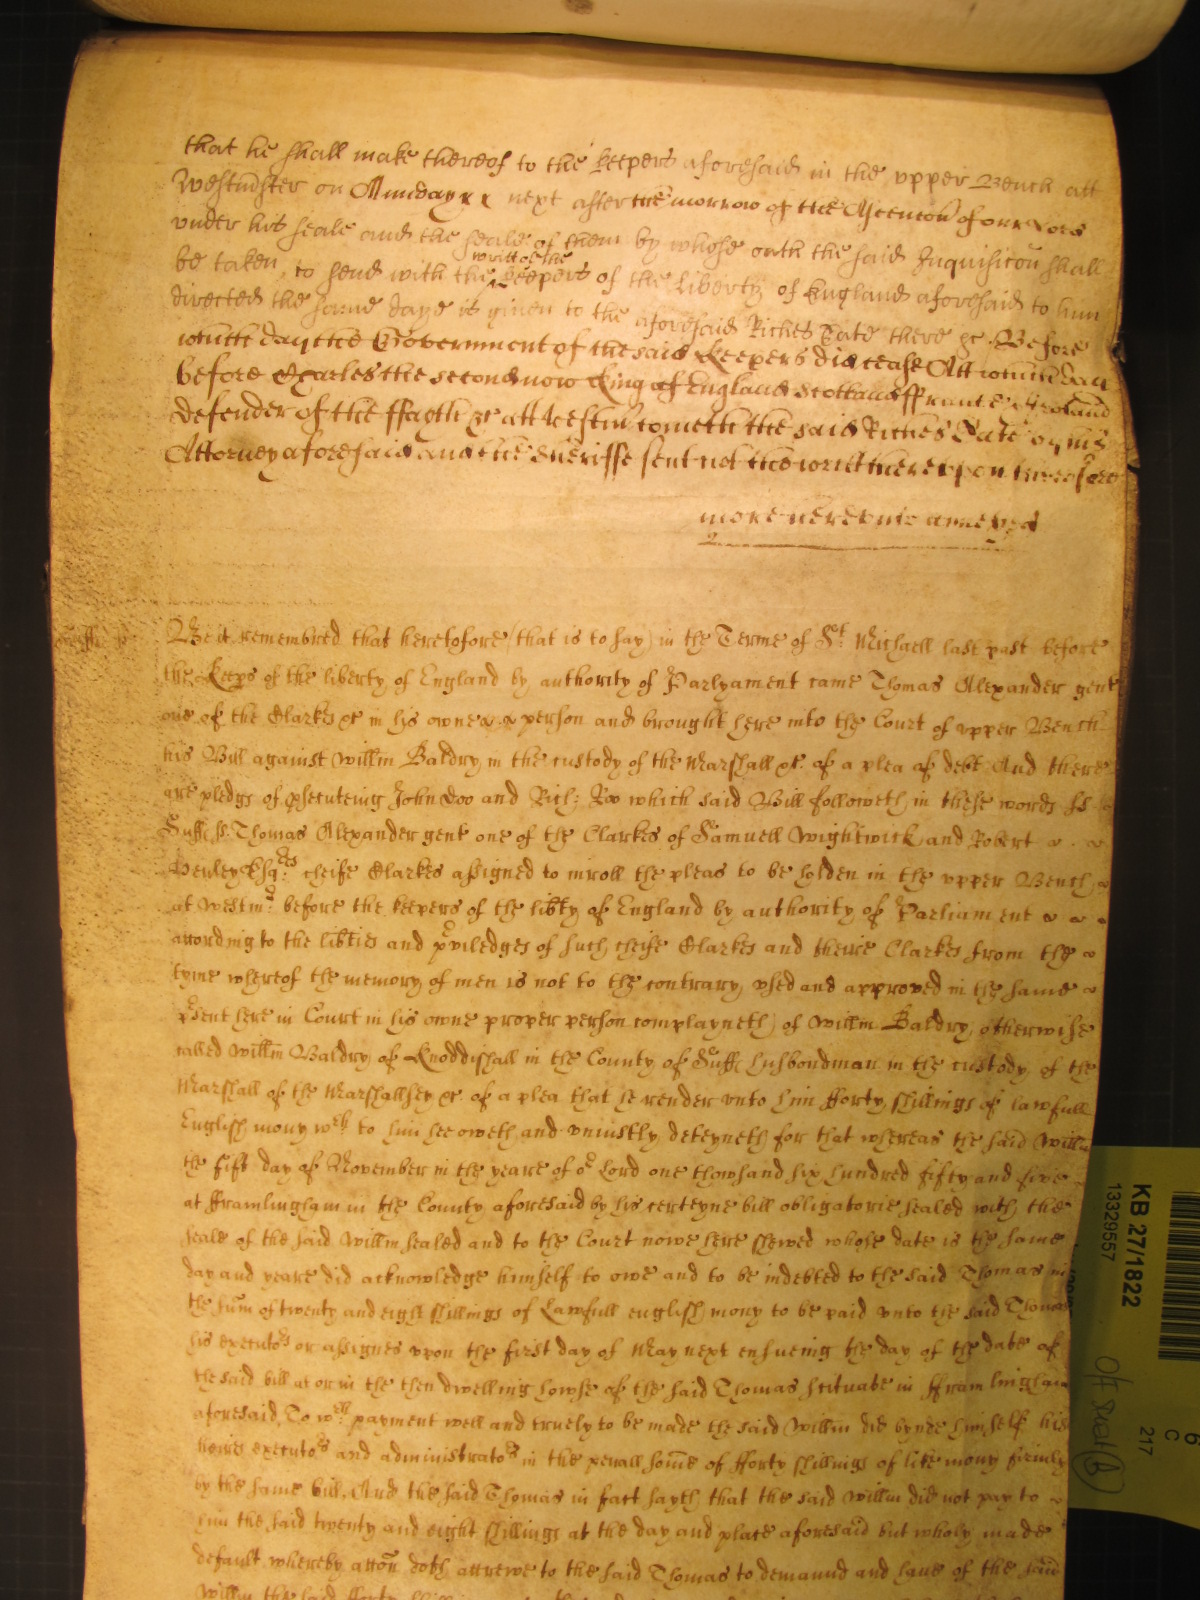 that he shall make thereof to the keepers aforesaid in the vpper Bench att
Westminster on Munday x x next after the morrow of the Ascencon of our Lord
vnder his seale and the seale of them by whose oath the said Inquisicon shall
writt of the
be taken, to send with the keepers of the liberty of England aforesaid to him
directed the same daye is given to the aforesaid Riches Tate there &c Before
which day the Government of the said Keepers did cease Att which day
before Charles the second now King of England Scotland ffrance Ireland
defender of the ffayth &c att Westm cometh the said Riches Tate by his
Attorney aforesaid And the Sheriffe sent not the writ thereupon therefore
more hereunto annexed
Suff ss
Be it remembred that heretofore (that is to say) in the Terme of St Michaell last past before
the Keeps of the liberty of England by authority of Parlyament came Thomas Alexander gent
one of the Clarkes &c in his owne person and brought here into the Court of vpper Bench
his Bill against Willm Baldry in the custody of the Marshall &c of a plea of debt And there
are pledgs of psecuteing John Doo and Rich: Roo which said Bill followeth in these words ss
Suff ss. Thomas Alexander gent one of the Clarkes of Samuell Wightwick and Robert
Henley Esqrs cheife Clarkes assigned to inroll the pleas to be holden in the vpper Bench
at Westmr before the keepers of the libty of England by authority of Parliament
according to the libties and pviledges of such cheife Clarkes and theire Clarkes from the
tyme whereof the memory of men is not to the contrary vsed and approved in the same
psent here in Court in his owne proper person complayneth of Willm Baldry otherwise
called Willm Baldry of Knoddishall in the County of Suff husbondman in the custody of the
Marshall of the Marshallsey &c of a plea that he render vnto him fforty shillings of lawfull
English mony wch to him hee oweth and vniustly deteyneth for that whereas the said Willm
the fift day of November in the yeare of or Lord one thowsand six hundred fifty and five
at fframlingham in the County aforesaid by his certeyne bill obligatorie sealed with the
seale of the said Willm sealed and to the Court nowe here shewed whose date is the same
day and yeare did acknowledge himself to owe and to be indebted to the said Thomas in
the sum of twenty and eight shillings of Lawfull english mony to be paid vnto the said Thomas
his executors or assignes vpon the first day of May next ensueing the day of the date of
the said bill at or in the then dwelling howse of the said Thomas scituate in fframlingham
aforesaid, To wch payment well and truely to be made the said Willm did bynde himself his
heires executors and administrators in the penall somme of fforty shillings of like mony firmly
by the same bill, And the said Thomas in fact sayth that the said Willm did not pay to
him the said twenty and eight shillings at the day and place aforesaid but wholy made
default whereby accon doth accrewe to the said Thomas to demaund and haue of the said
Willm the said fforty
KB 27/1822
13329557
6
C
217